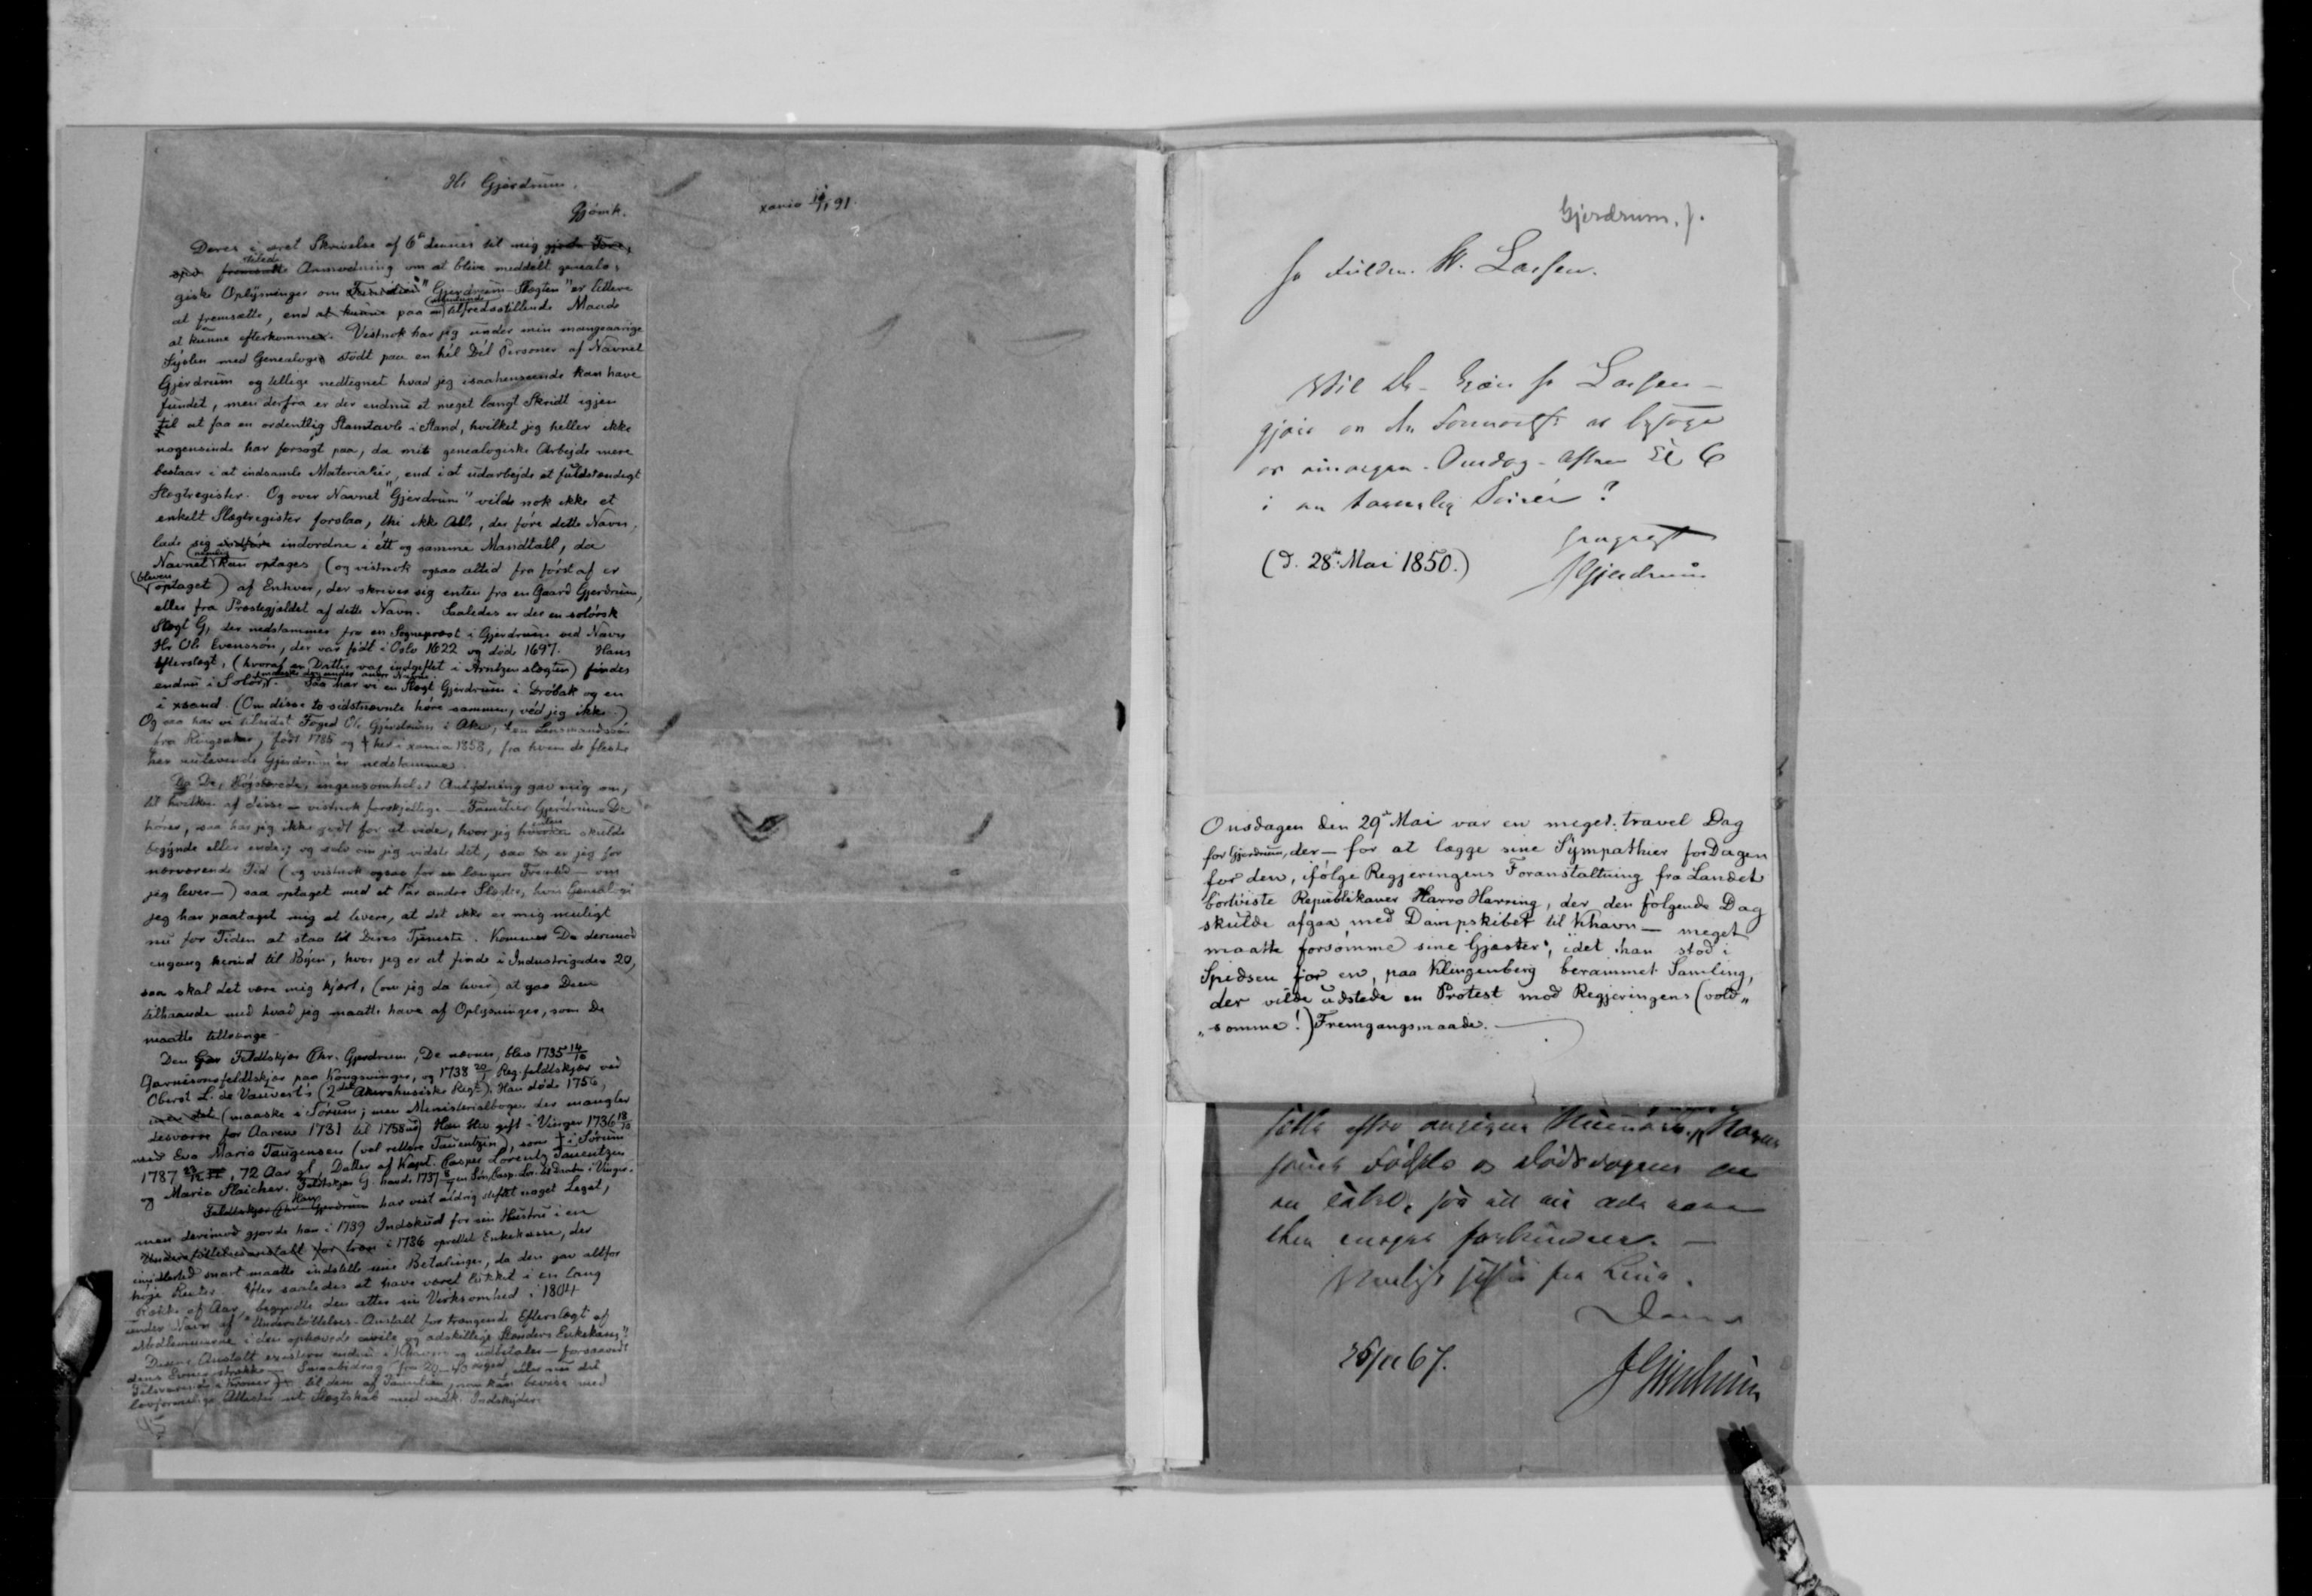 Hr Gjerdrum,
Gjövik.
xania 19/1 91.
Deres i æret Skrivelse af 6te dennes til mig gjorde Fore,
fremsatte Anmodning om at blive meddelt genealo,
giske Oplysninger om Familien "Gjerdrum-Slægten" er lettere
at fremsætte, end at kunne paa en tilfredsstillende Maade
at kunne efterkomme. Vistnok har jeg under min mangeaarige
Syslen med Genealogi stödt paa en hel Del Personer af Navnet
Gjerdrum og tillige nedtegnet hvad jeg isaahenseende kan have
fundet, men derfra er der endnu et meget langt Skridt igjen
til at faa en ordentlig Stamtavle i Stand, hvilket jeg heller ikke
nogensinde har forsögt paa, da mit genealogiske Arbejde mere
bestaar i at indsamle Materialier, end i at udarbejde et fuldstændigt
Slægtregister. Og over Navnet "Gjerdrum" vilde nok ikke et
enkelt Slægtregister forslaa, thi ikke Alle, der före dette Navn,
lade sig indordne i ett og samme Mandtall, da
Navnet nemlig kan optages (og vistnok ogsaa altid fra först af er
bleven optaget) af Enhver, der skriver sig enten fra en Gaard Gjerdrum,
eller fra Præstegjældet af dette Navn. Saaledes er der en solörsk
Slægt G, der nedstammer fra en Sognepræst i Gjerdrum ved Navn
Hr Ole Evensson, der var födt i Oslo 1622 og döde 1697. Hans
Efterslægt, (hvoraf en Datter var indgiftet i Arntzen slægten) findes
endnu i Solör. Saa har vi en Slægt Gjerdrum i Dröbak og en
i xsand. (Om disse to sidstnævnte höre sammen, ved jeg ikke.)
Og saa har vi tilsidst Foged Ole Gjerdrum i Aker, en Lensmandssön
fra Ringsaker, födt 1785 og † her i xania 1858, fra hvem de fleste
her nulevende Gjerdrum'er nedstamme.
Da De, Höjstærede, ingensomhelst Antydning gav mig om,
til hvilken af disse – vistnok forskjellige – Familier Gjerdrum De
hörer, saa har jeg ikke godt for at vide, hvor jeg skulde
begynde eller ende; og selv om jeg vidste det, saa er jeg for
nærværende Tid (og vistnok ogsaa for en længere Fremtid – om
jeg lever –) saa optaget med et Par andre Slægter, hvis Genealogi
jeg har paataget mig at levere, at det ikke er mig muligt
nu for Tiden at staa til Deres Tjeneste. Kommer De derimod
engang herind til Byen, hvor jeg er at finde i Industrigaden 20,
saa skal det være mig kjært, (om jeg da lever) at gaa Dem
tilhaande med hvad jeg maatte have af Oplysninger, som De
maatte tiltrænge.
Den Feldtskjær Chr. Gjerdrum, De nævner, blev 1735 14/10
Garnisonsfeldtskjær paa Kongsvinger, og 1738 20/1 Reg.feldtskjær ved
Oberst L. de Vauvert's (2det Akershusiske Regt). Han döde 1756,
(maaske i Sörum; men Ministerialbogen der mangler
desværre for Aarene 1731 til 1758). Han blev gift i Vinger 1736 18/10
med Eva Maria Taugensen (vel rettere Tauentzin), som † i Sörum
1787, 72 Aar gl, Datter af Kapt. Casper Lorentz Tauentzin
og Maria Slaicher. Feldtskjær G. havde 1737
Feldtskjær Chr. Gjerdrum Han har vist aldrig stiftet noget Legat,
men derimod gjorde han i 1739 Indskud for sin Hustru i en
i 1736 oprettet Enkekasse, der
imidlertid snart maatte indstille sine Betalinger, da den gav altfor
höje Renter. Efter saaledes at have været lukket i en lang
Række af Aar, begyndte den atter sin Virksomhed i 1804
under Navn af "Understöttelses-Anstalt for trængende Efterslægt af
Medlemmerne i den ophævede civile og adskillige Stænders Enkekasse."
Denne Anstalt existerer endnu i Khavn og udbetaler – forsaavidt
dens Evner strække – Smaabidrag
til dem af Familien, som kan bevise med
lovformelige Attester sit Slægtskab med vedk. Indskyder.
Gjerdrum. J.
Hr Fuldm. W. Lassen.
Vil De – Hr Lassen –
gjöre os den Fornöielse at besöge
os imorgen – Onsdag – Aften Kl 6
i en Soirée?
(d. 28de Mai 1850.)
JGjerdrum
Onsdagen den 29de Mai var en meget travel Dag
for Gjerdrum, der – for at lægge sine Sympathier for Dagen
for den, ifölge Regjeringens Foranstaltning fra Landet
bortviste Republikaner Harro Harring, der den fölgende Dag
skulde afgaa med Dampskibet til Khavn – meget
maatte forsömme sine Gjæster, idet han stod i
Spidsen for en, paa Klingenberg berammet Samling,
der vilde udstede en Protest mod Regjeringens (vold„
„somme!) Fremgangsmaade.
Födsels og Dödsdagen
Deres
JGjerdrum